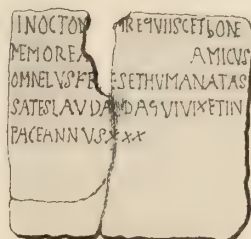 INOCTON MREQVIISCETbONE
MEMOREX AMICVS
OMNELVSFE ESETHVMANATAS
SATESLAVDANDAQVIVIXETIN
PACEANNVSXXX